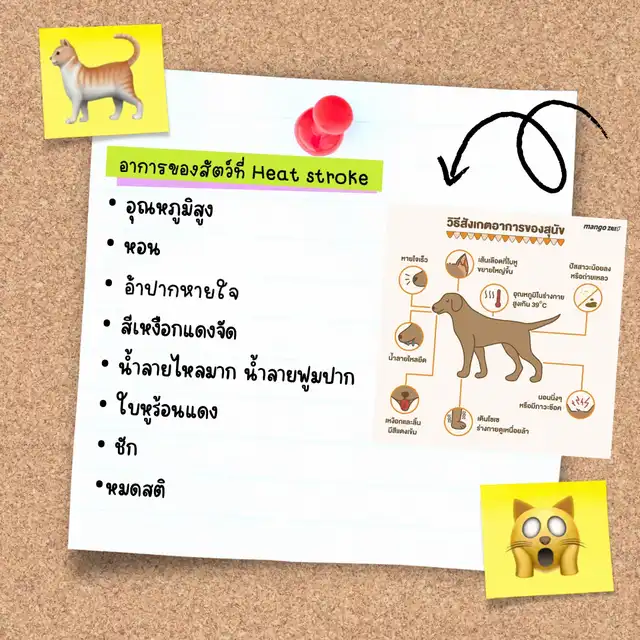 อาการของสัตว์ที่ Heat stroke
• อุณหภูมิสูง
• หอน
• อ้าปากหายใจ
• สีเหงือกแดงจัด
• น้ำลายไหลมาก น้ำลายฟูมปาก
• ใบหูร้อนแดง
• ชัก
•หมดสติ
วิธีสังเกตอาการของสุนัข
mango zero
หายใจเร็ว
เส้นเลือดที่ใบหู
ขยายใหญ่ขึ้น
ปัสสาวะน้อยลง
หรือถ่ายเหลว
อุณหภูมิในร่างกาย
สูงเกิน 39°C
น้ำลายไหลยืด
นอนนิ่งๆ
หรือมีภาวะช๊อค
เหงือกและลิ้น
มีสีแดงเข้ม
เดินโซเซ
ร่างกายดูเหนื่อยล้า